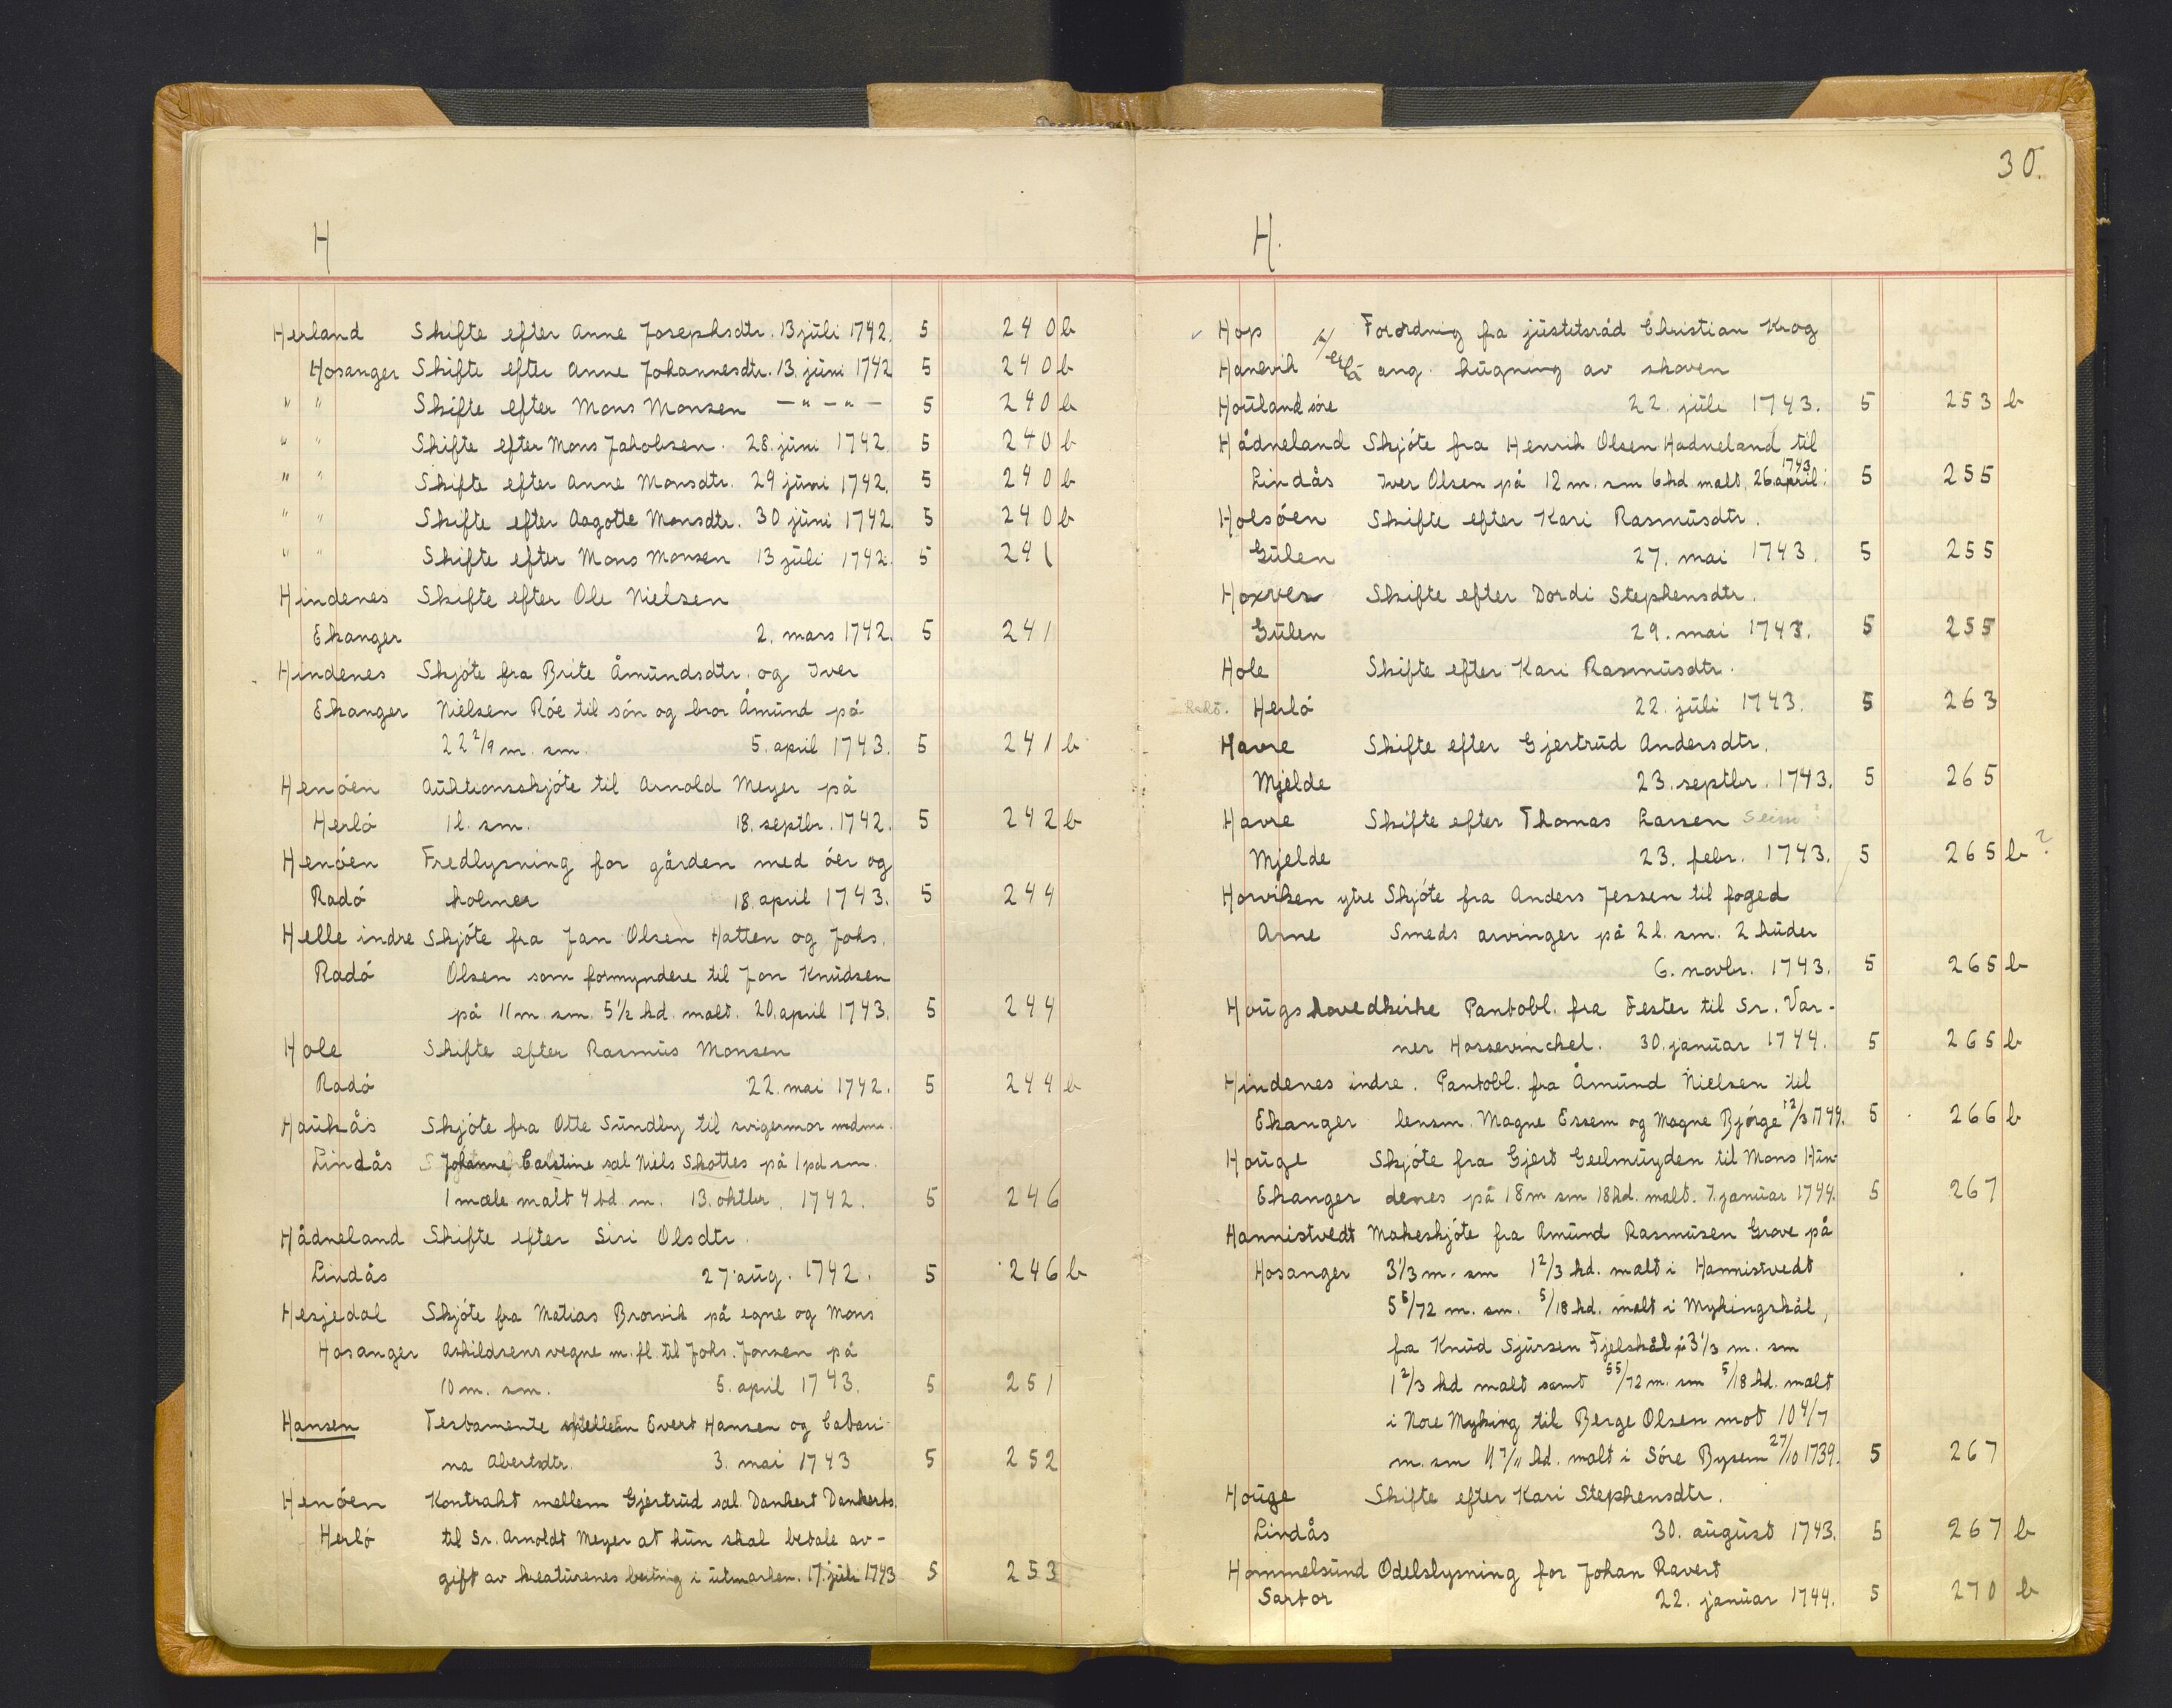 H
Herland Skifte efter Anne Josephsdtr. 13 juli 1742. 5 240 b
Hosanger Skifte efter Anne Johannesdtr. 13. juni 1742 5 240 b
" " Skifte efter Mons Monsen — " — " — 5 240 b
" " Skifte efter Mons Jakobsen. 28. juni 1742 5 240 b
" " Skifte efter Anne Monsdtr. 29 juni 1742. 5 240 b
" " Skifte efter Aagotte Monsdtr. 30 juni 1742. 5 240 b
" " Skifte efter Mons Monsen 13 juli 1742. 5 241
Hindenes Skifte efter Ole Nielsen
Ekanger 2. mars 1742. 5 241
Hindenes Skjöte fra Brite Åmundsdtr. og Iver
Ekanger Nielsen Röe til sön og bror Åmund på
22 2/9 m. sm. 5. april 1743. 5 241 b
Henöen Auktionsskjöte til Arnold Meyer på
Herlö 1 l. sm. 18. septbr. 1742. 5 242 b
Henöen Fredlysning for gården med öer og
Radö holmer 18. april 1743. 5 244
Helle indre Skjöte fra Jan Olsen Hatten og Johs.
Radö Olsen som formyndere til Jon Knudsen
på 11 m. sm. 5 1/2 kd. malt. 20. april 1743. 5 244
Hole Skifte efter Rasmus Monsen
Radö 22. mai 1742. 5 244 b
Haukås Skjöte fra Otte Sundby til svigermor mdme.
Lindås Johanne Carstine sal Niels Skottes på 1 pd sm.
1 mæle malt 4 bd. m. 13. oktbr. 1742. 5 246
Hådneland Skifte efter Siri Olsdtr.
Lindås 27 aug. 1742. 5 246 b
Hesjedal Skjöte fra Matias Brorvik på egne og Mons
Hosanger Askildsens vegne m. fl. til Johs. Jonsen på
10 m. sm. 5. april 1743. 5 251
Hansen Testamente mellem Evert Hansen og Catari-
na Abertsdtr. 3. mai 1743 5 252
Henöen Kontrakt mellem Gjertrud sal. Dankert Dankerts.
Herlö til Sr. Arnoldt Meyer at hun skal betale av-
gift av kreaturenes beitnig i utmarken. 17. juli 1743 5 253
30.
H.
Hop Forordnig fra justitsråd Christian Krog
Hanevik ang. hugning av skoven
Houland söre 22. juli 1743. 5 253 b
Hådneland Skjöte fra Henrik Olsen Hadneland til
Lindås Iver Olsen på 12 m. sm 6 kd malt, 26 april 1743. 5 255
Holsöen Skifte efter Kari Rasmusdtr.
Gulen 27. mai 1743. 5 255
Hoxver Skifte efter Dordi Stephensdtr.
Gulen 29. mai 1743. 5 255
Hole Skifte efter Kari Rasmusdtr.
Radö. Herlö 22. juli 1743. 5 263
Havre Skifte efter Gjertrud Andersdtr.
Mjelde 23. septbr. 1743. 5 265
Havre Skifte efter Thomas Larsen Seim
Mjelde 23. febr. 1743. 5 265 b ?
Horviken ytre Skjöte fra Anders Jessen til foged
Arne Smeds arvinger på 2 l. sm. 2 huder
6. novbr. 1743. 5 265 b
Hougs hovedkirke Pantobl. fra Fester til Sr. Var-
ner Hossevinckel. 30. januar 1744. 5 265 b
Hindenes indre. Pantobl. fra Åmund Nielsen til
Ekanger lensm. Magne Essem og Magne Bjørge 12/3 1744. 5 266 b
Houge Skjöte fra Gjert Geelmuyden til Mons Hin-
Ekanger denes på 18 m sm 18 kd. malt. 7. januar 1744. 5 267
Hannistvedt Makeskjöte fra Amund Rasmusen Grove på
Hosanger 3 1/3 m. sm 1 2/3 kd. malt i Hannistvedt
5 5/72 m. sm. 5/18 kd. malt i Mykingskål,
fra Knud Sjursen Fjelskål på 3 1/3 m. sm
1 2/3 kd malt samt 55/72 m. sm 5/18 kd. malt
i Nore Myking til Berge Olsen mot 10 4/7
m. sm 4 7/11 kd. malt i Söre Bysem 27/10 1739. 5 267
Houge Skifte efter Kari Stephensdtr.
Lindås 30. august 1743. 5 267 b
Hommelsund Odelslysning for Johan Ravert
Sartor 22. januar 1744. 5 270 b